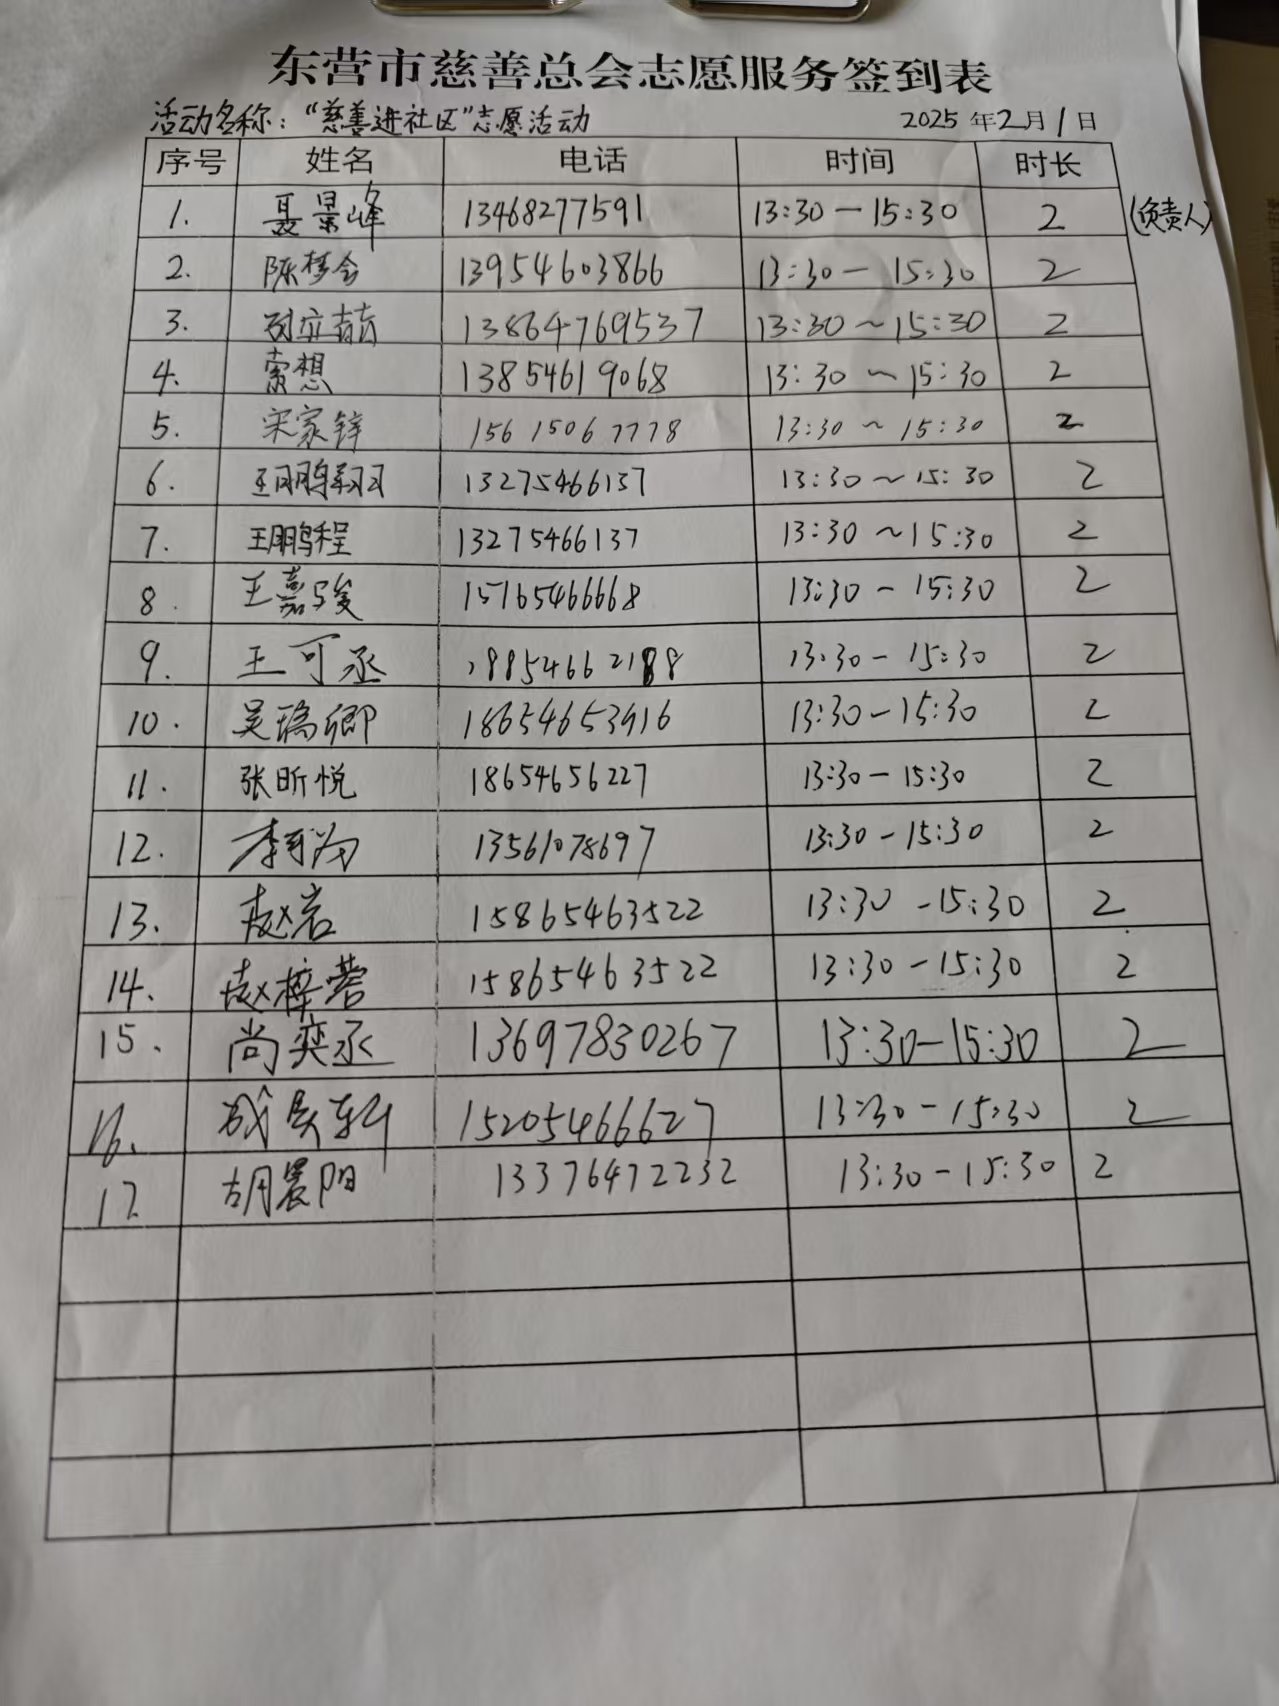 东营市慈善总会志愿服务签到表
活动名称：“慈善进社区”志愿活动 2025年2月1日
序号 姓名 电话 时间 时长
1. 聂景峰 13468277591 13:30—15:30 2 (负责人)
2. 陈梦会 13954603866 13:30—15:30 2
3. 13864769537 13:30~15:30 2
4. 索想 13854619068 13:30~15:30 2
5. 宋家锌 15615067778 13:30~15:30 2
6. 王鹏翔 13275466137 13:30~15:30 2
7. 王鹏程 13275466137 13:30~15:30 2
8. 王嘉骏 15165466668 13:30-15:30 2
9. 王可丞 18854662188 13:30-15:30 2
10. 吴瑞卿 18654653916 13:30-15:30 2
11. 张昕悦 18654656227 13:30-15:30 2
12. 13561078697 13:30-15:30 2
13. 赵岩 15865463522 13:30-15:30 2
14. 赵梓蓉 15865463522 13:30-15:30 2
15. 尚奕丞 13697830267 13:30-15:30 2
16. 15205466627 13:30-15:30 2
17. 胡晨阳 13376472232 13:30-15:30 2